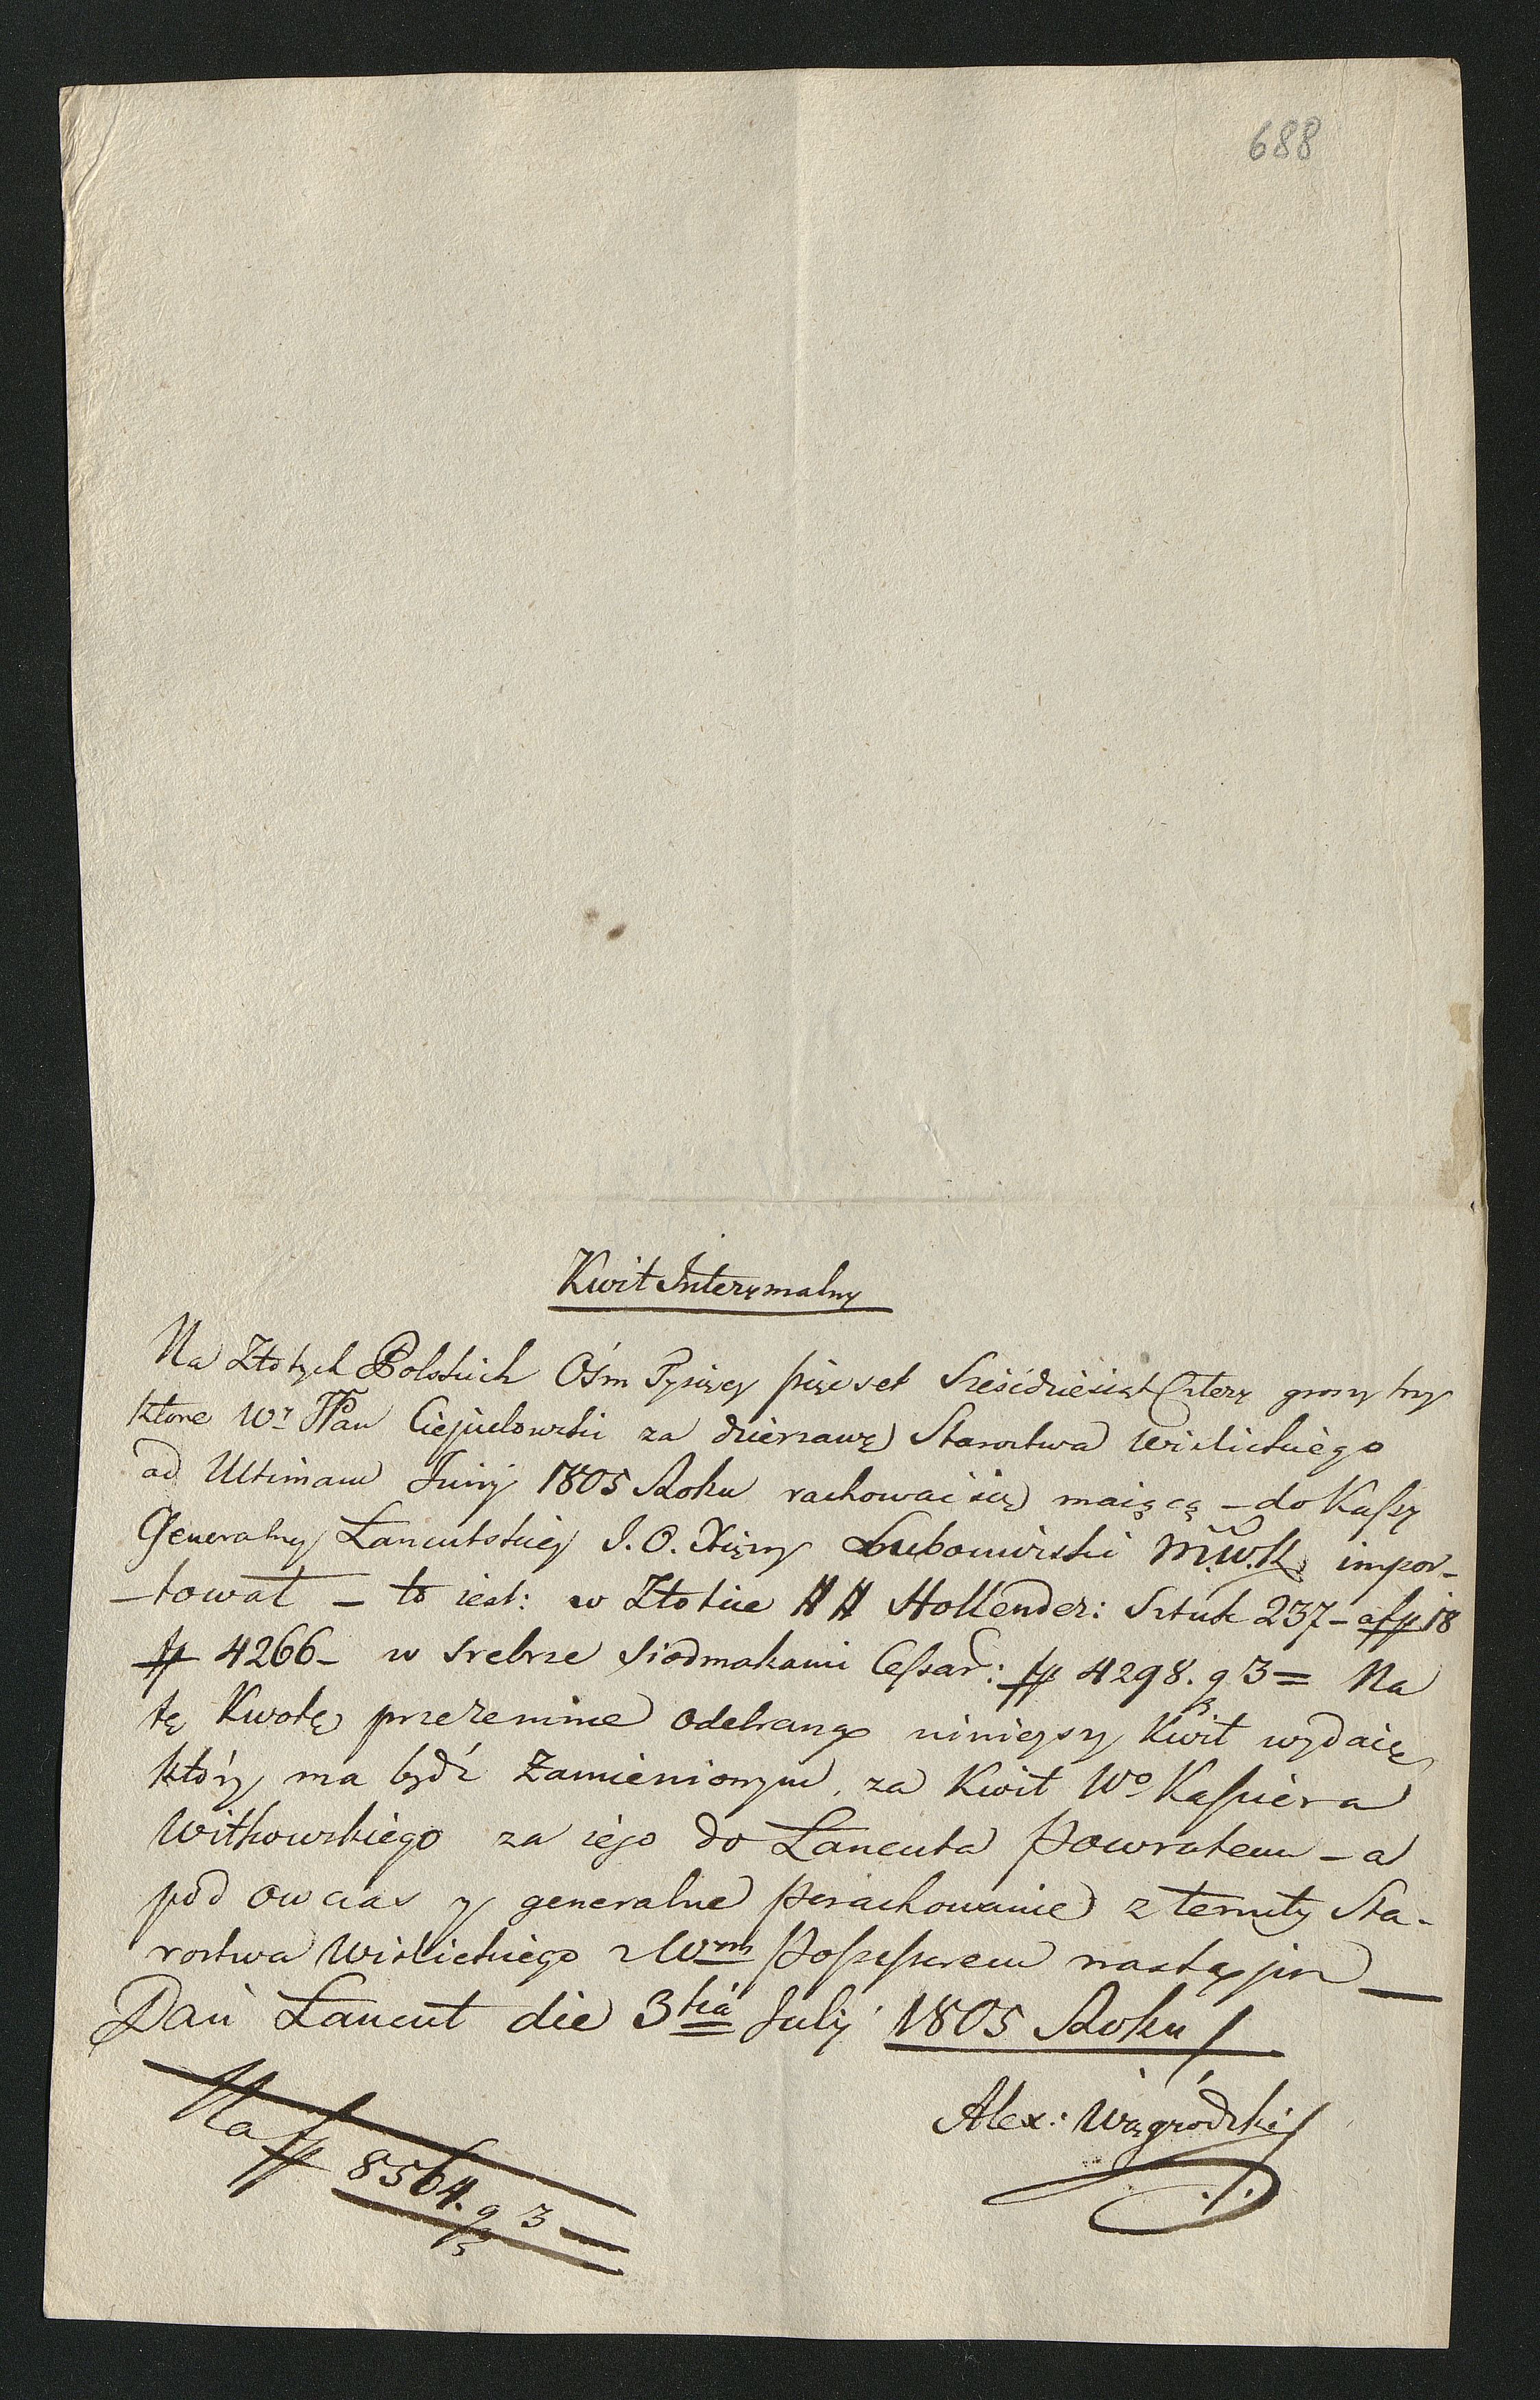 688
Kwit Interymalny
Na Złotych Polskich Ośm Tysięcy pięcset Sześcdziesiąt Cztery groszy trzy
które Wr. JPan Ciepielowski za dzierzawę Starostwa Wislickiego
ad Ultimam Junij 1805 Roku rachować się maiącą - do Kassy
Generalney Łancutskiey J. O. Xiężny Lubomirski M.W.K. impor-
-tował - to iest: w Złotcie ## Hollender: Sztuk 237 - a fp 18
fp 4266 - w srebrze siodmakami Cessar: fp 4298. g 3 = Na
tę Kwotę przezemnie odebraną ninieyszy Kwit wydaię
który ma bydź Zamienionym, za Kwit Wo Kassiera
Witkowskiego za iego do Łancuta powrotem - a
pod ow czas y generalne porachowanie z tenuty Sta-
rostwa Wislickiego z Wm Possessorem nastąpi
Dań Łancut die 3tia Julij 1805 Roku
Alex: Wągrodzki
Na fp 8564. g 3